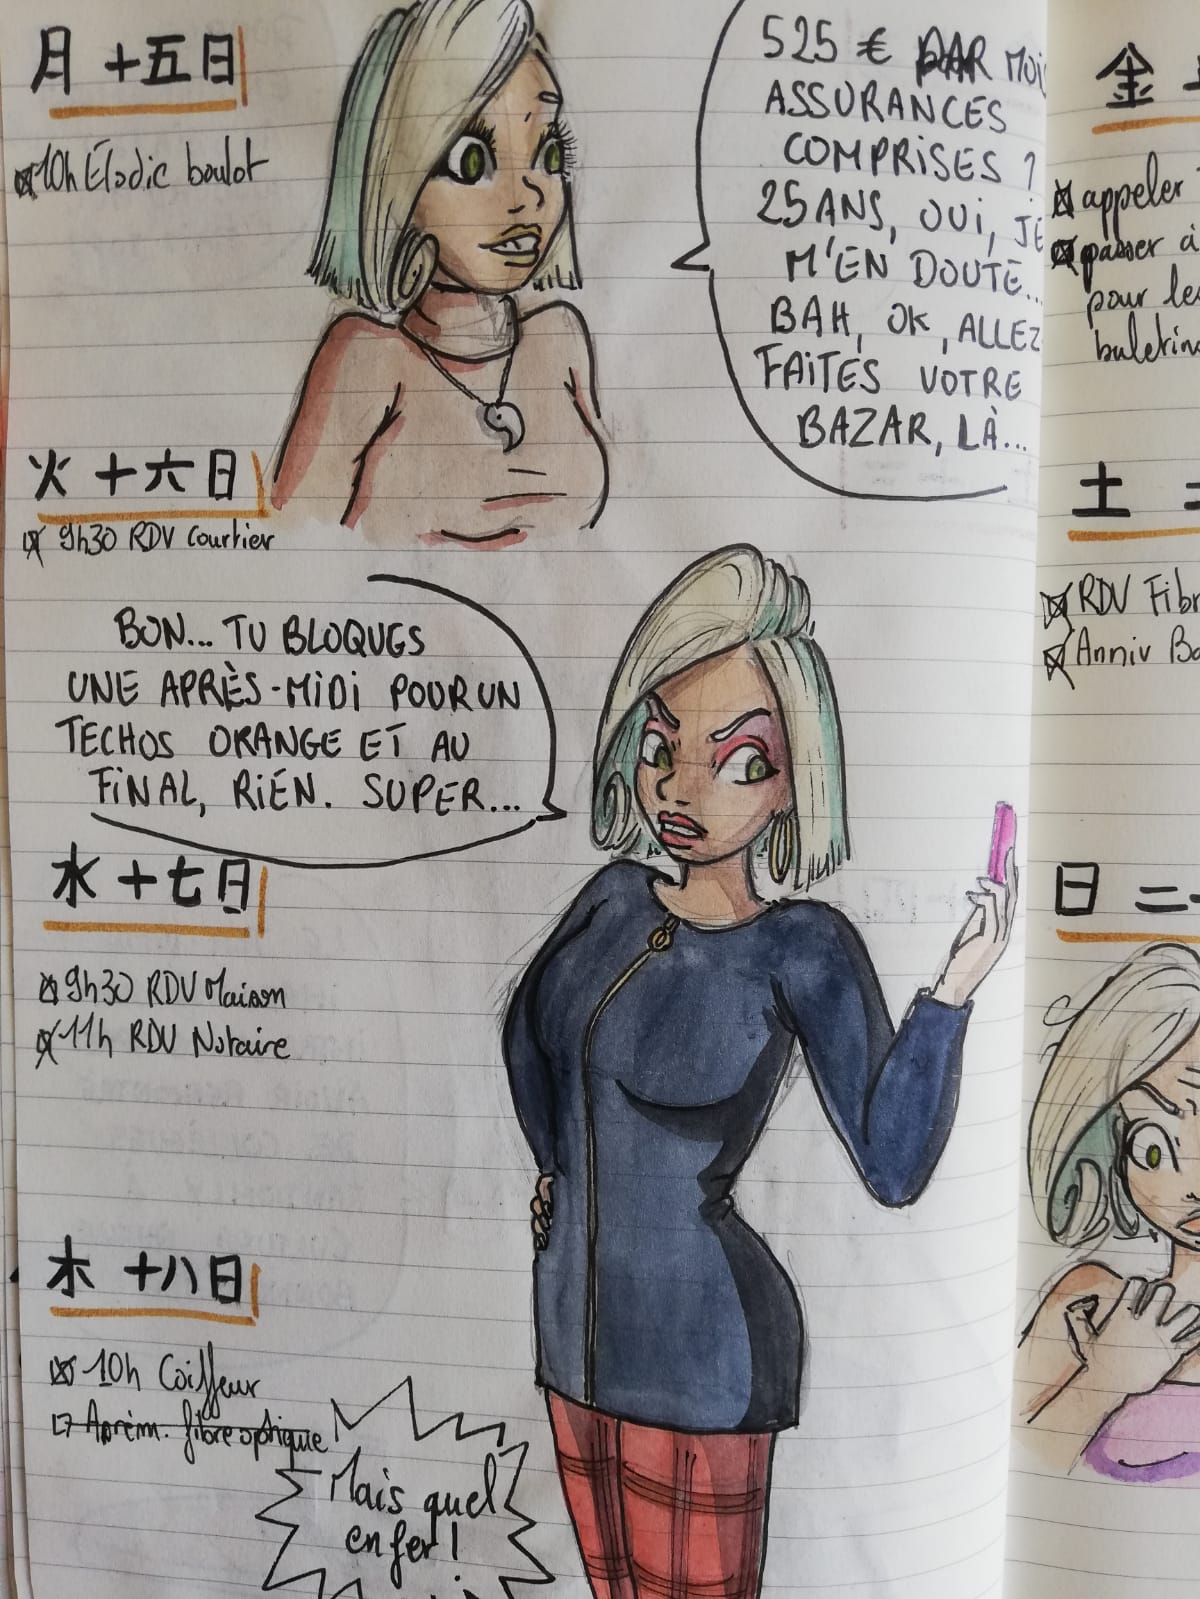 月 十五日
10h Élodie boulot
525 € PAR MOIS
ASSURANCES
COMPRISES ?
25 ANS, OUI, JE
M'EN DOUTE...
BAH, OK, ALLEZ
FAITES VOTRE
BAZAR, LÀ...
火 十六日
9h30 RDV Courtier
BON... TU BLOQUES
UNE APRÈS-MIDI POUR UN
TECHOS ORANGE ET AU
FINAL, RIEN. SUPER...
水 十七日
9h30 RDV Maison
11h RDV Notaire
木 十八日
10h Coiffeur
Aprèm. fibre optique
Mais quel
enfer !
金
appeler
passer à
pour les
土
RDV Fibr
Anniv Ba
日 二